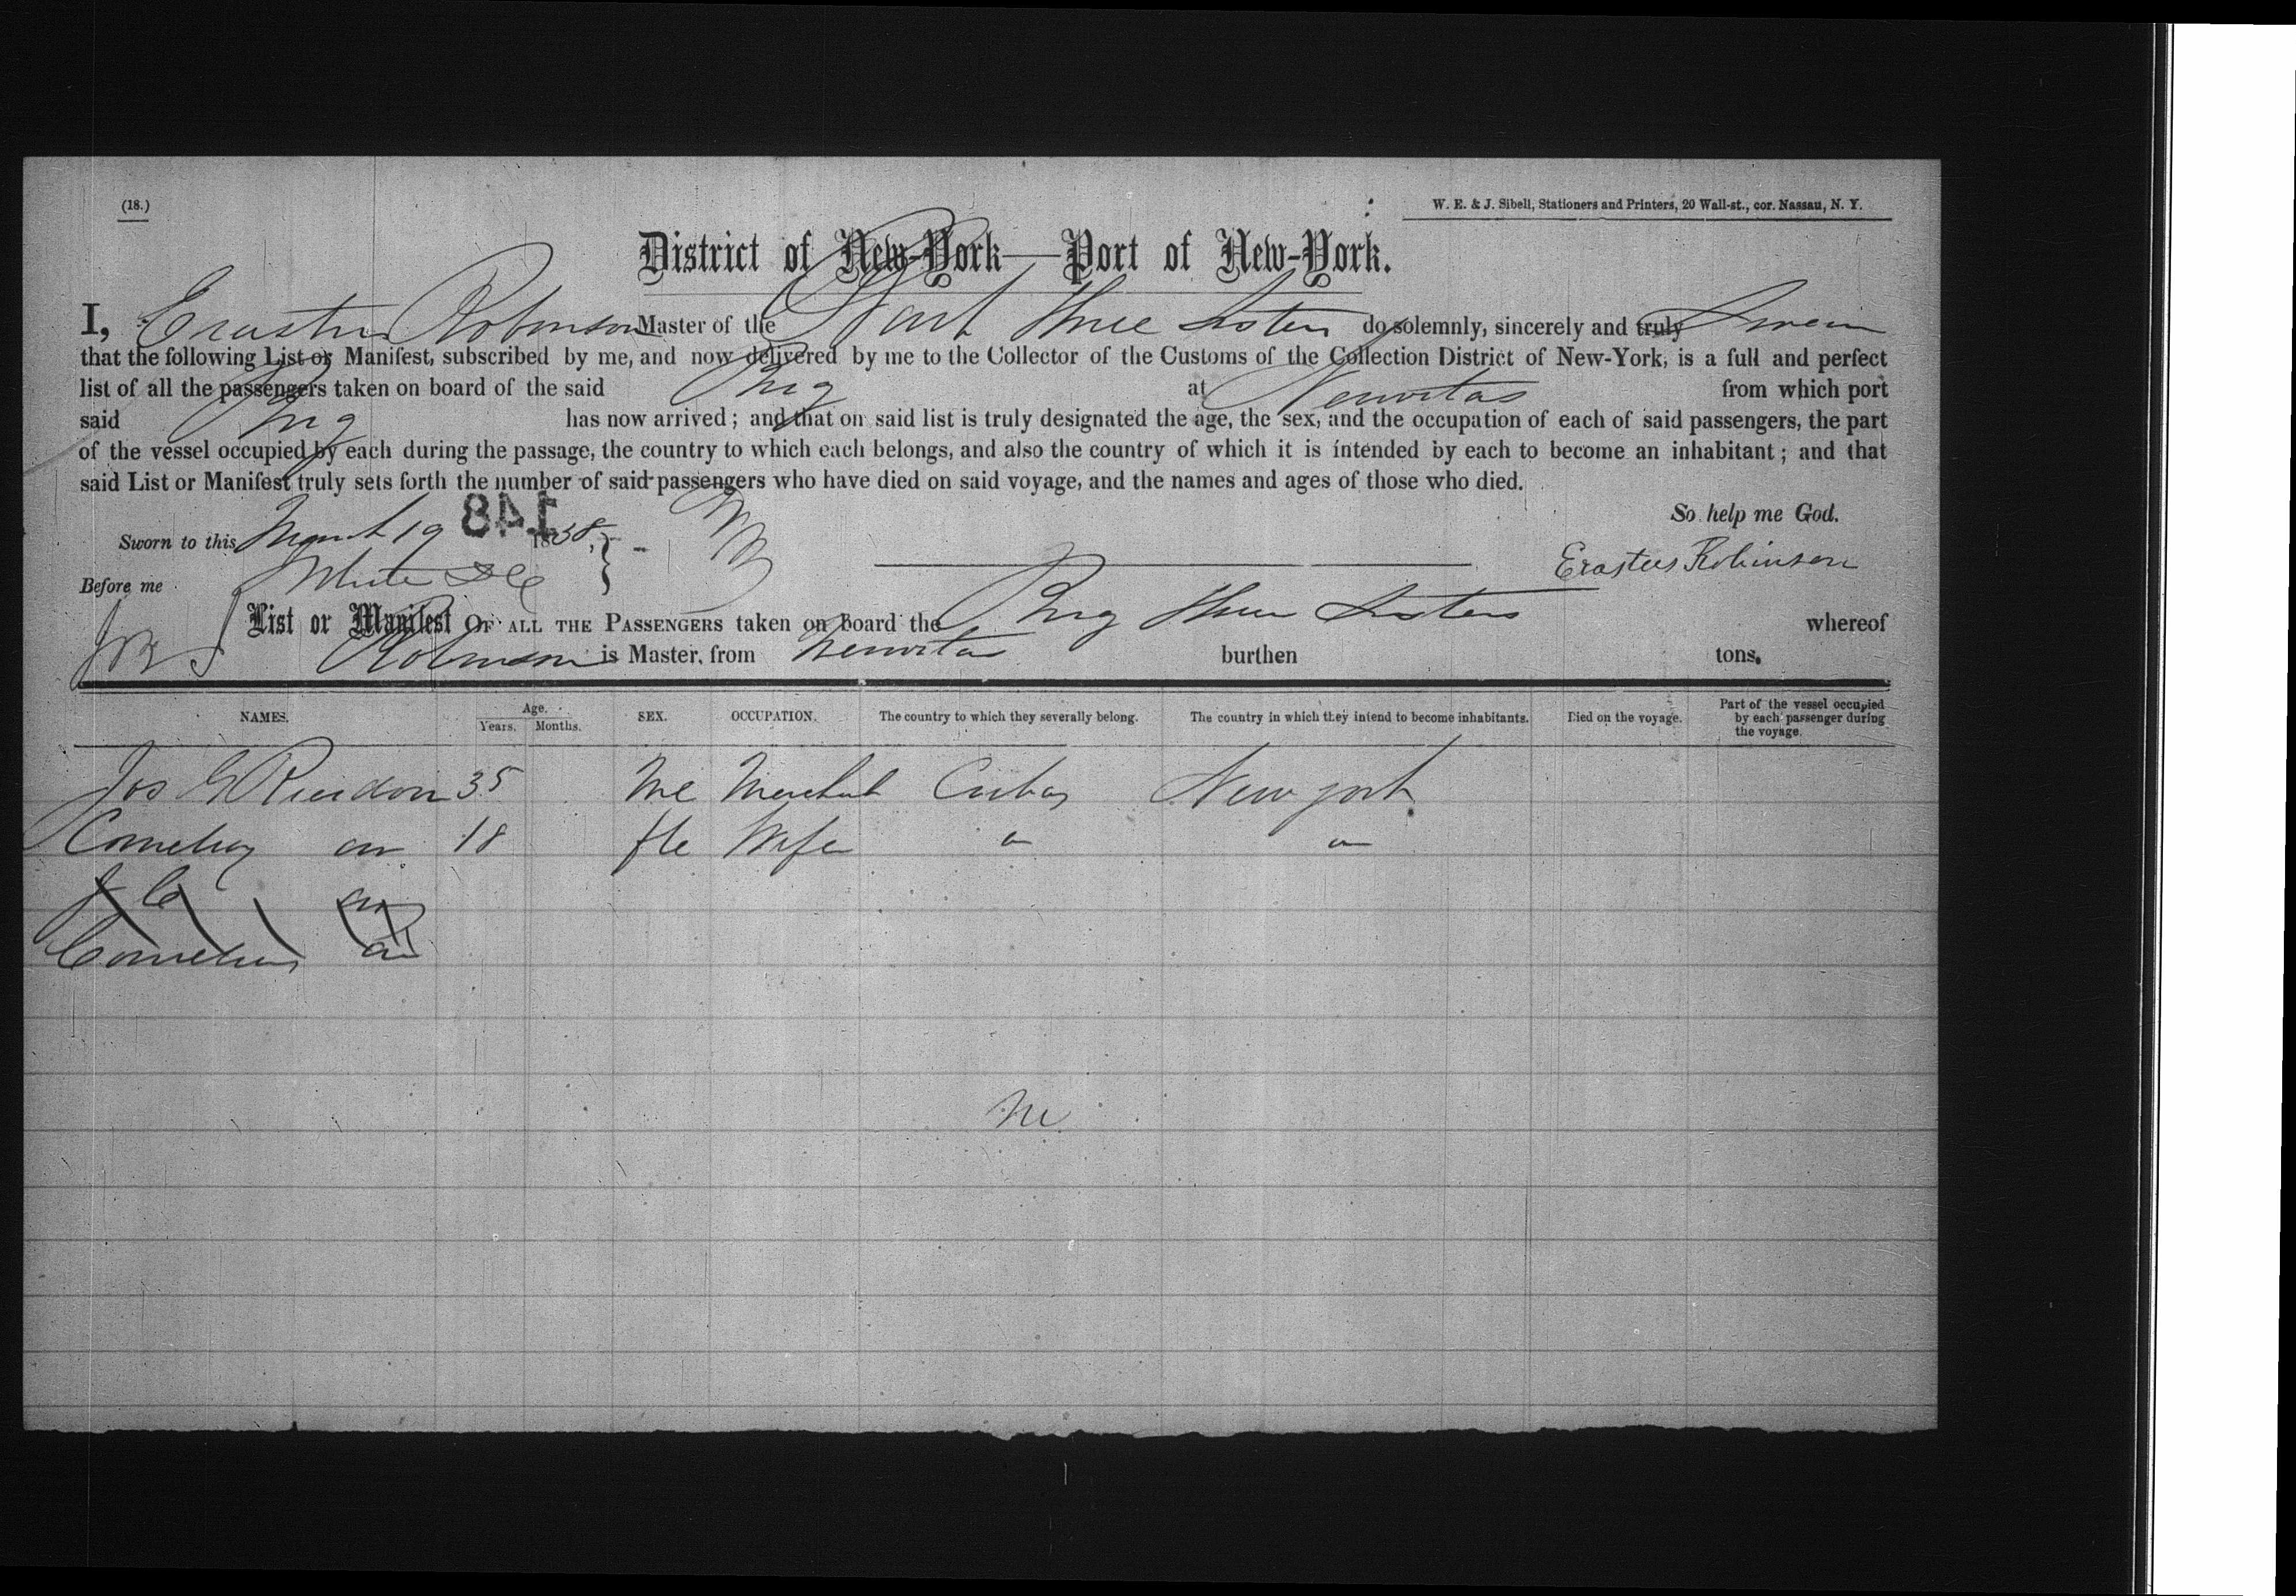 (18.)
W. E. & J. Sibell, Stationers and Printers, 20 Wall-st., cor. Nassau, N. Y.
District of New-York—Port of New-York.
I, Erastus Robinson Master of the Three Sisters do solemnly, sincerely and truly Swear
that the following List or Manifest, subscribed by me, and now delivered by me to the Collector of the Customs of the Collection District of New-York, is a full and perfect
list of all the passengers taken on board of the said Brig at Neuvitas from which port
said Brig has now arrived; and that on said list is truly designated the age, the sex, and the occupation of each of said passengers, the part
of the vessel occupied by each during the passage, the country to which each belongs, and also the country of which it is intended by each to become an inhabitant; and that
said List or Manifest truly sets forth the number of said passengers who have died on said voyage, and the names and ages of those who died.
So help me God.
Sworn to this March 19 1858,
148
Erastus Robinson
Before me
List or Manifest OF ALL THE PASSENGERS taken on board the Brig Three Sisters whereof
Robinson is Master, from Neuvitas burthen tons.
NAMES. Age. Years. Months. SEX. OCCUPATION. The country to which they severally belong. The country in which they intend to become inhabitants. Died on the voyage. Part of the vessel occupied by each passenger during the voyage.
Jos G Riendon 35 Me Merchant Cuba New York
18 fle Wife "  "